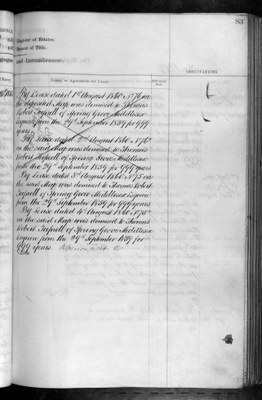 83
Register of Estates.
Record of Title.
and Incumbrances.
OBSERVATIONS
By Lease dated 1st August 1860 No 76 on
the deposited Map was demised to Thomas
Robert Tufnell of Spring Grove Middlesex
Esquire from the 29th September 1859 for 999
years
By Lease dated 2nd August 1860 No
the said Map was demised to Thomas
Robert Tufnell of Spring Grove Middlesex
from the 29th September 1859 for 999 years
By Lease dated 3rd August 1860 No 75 on
the said Map was demised to Thomas Robert
Tufnell of Spring Grove Middlesex Esquire
from the 29th September 1859 for 999 years
By Lease dated 4th August 1860 No
on the said Map was demised to Thomas
Robert Tufnell of Spring Grove Middlesex
Esquire from the 29th September 1859 for
999 years